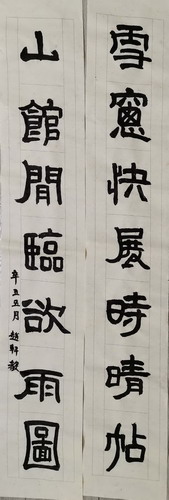 雪窗快展時晴帖
山館閒臨欲雨圖
辛丑五月 趙軒毅